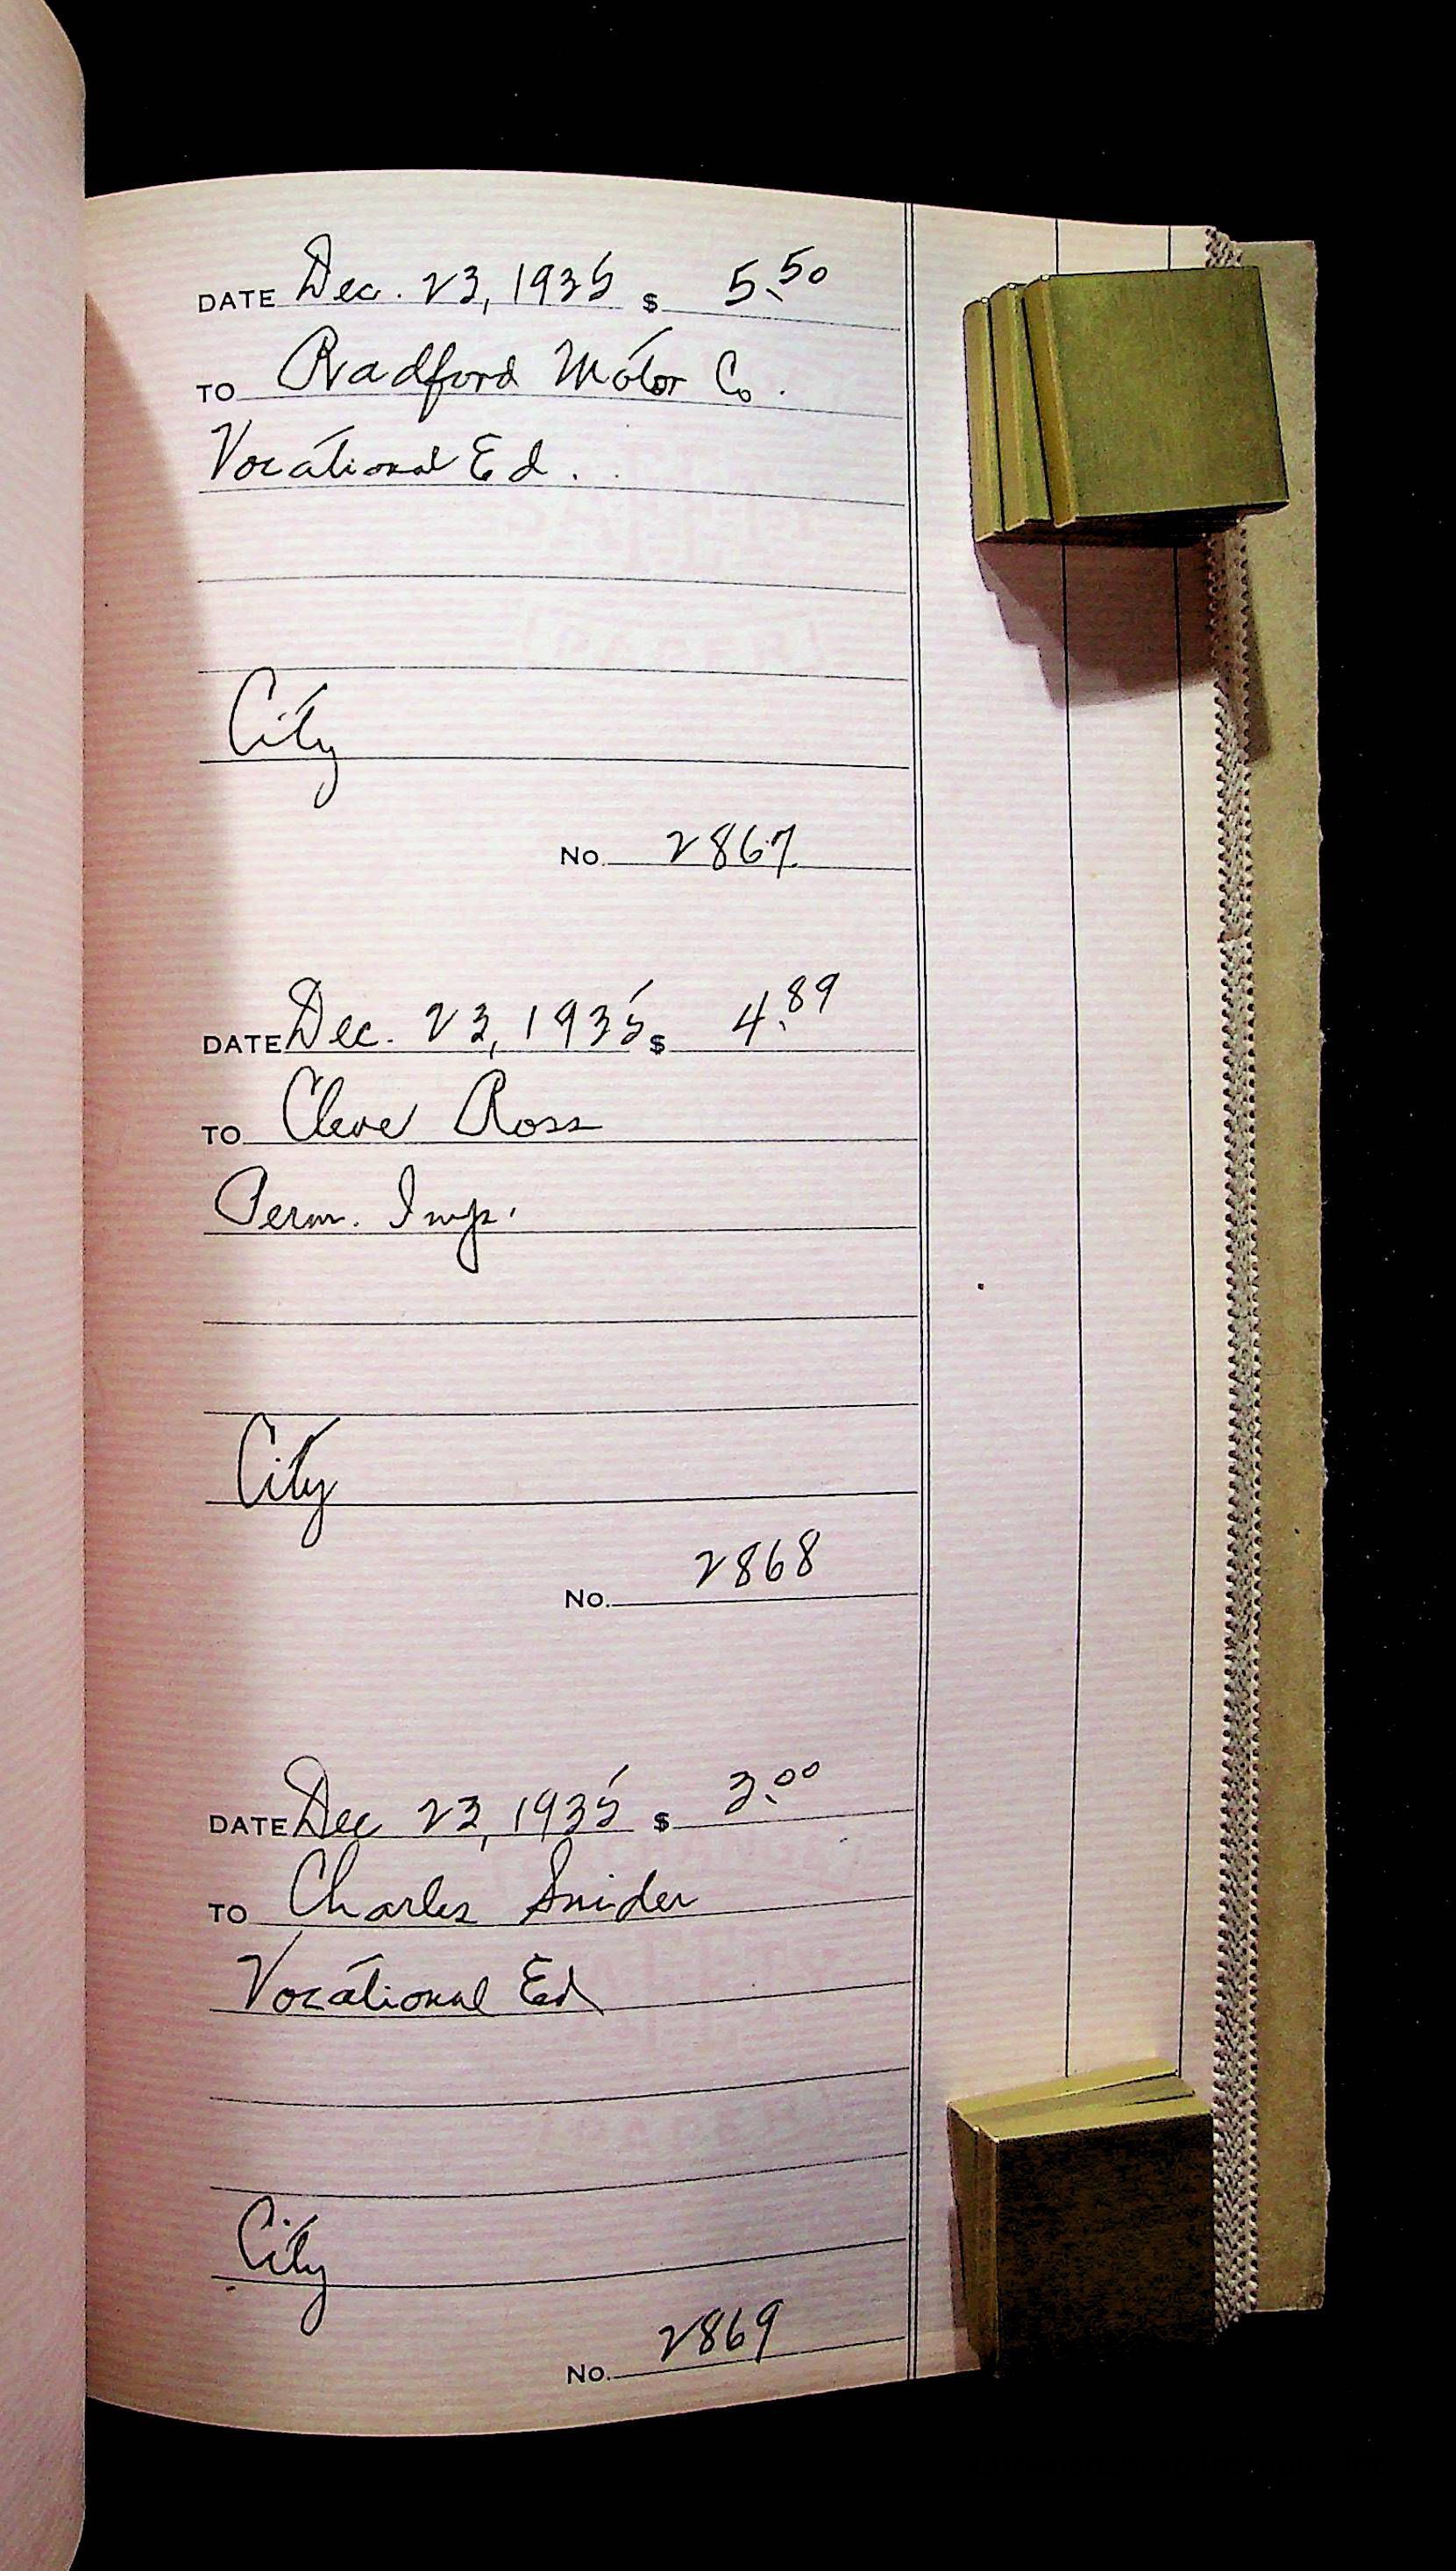 DATE Dec. 23, 1935 $ 5.50
TO Radford Motor Co.
Vocational Ed.
City
No. 2867
DATE Dec. 23, 1935 $ 4.89
TO Cleve Ross
Perm. Imp.
City
No. 2868
DATE Dec 23, 1935 $ 3.00
TO Charles Snider
Vocational Ed
City
No. 2869